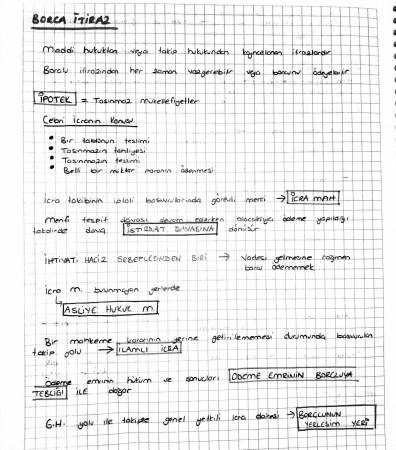 BORCA İTİRAZ
Maddi hukuktan veya takip hukukundan kaynaklanan itirazlardır
Borçlu itirazından her zaman vazgeçebilir veya borcunu ödeyebilir
İPOTEK = Taşınmaz mükellefiyetler
Cebri İcranın Konusu
• Bir tablonun teslimi
• Taşınmazın tahliyesi
• Taşınmazın teslimi
• Belli bir miktar paranın ödenmesi
İcra takibinin iptali başvurularında görevli merci → İCRA MAH.
Menfi tespit davası devam ederken alacaklıya ödeme yapıldığı
takdirde dava İSTİRDAT DAVASINA dönüşür
İHTİYATİ HACİZ SEBEPLERİNDEN BİRİ → Vadesi gelmesine rağmen
borcu ödememek
İcra M. bulunmayan yerlerde
↳ ASLİYE HUKUK M.
Bir mahkeme kararının yerine getirilememesi durumunda başvurulan
takip yolu → İLAMLI İCRA
Ödeme emrinin hüküm ve sonuçları ÖDEME EMRİNİN BORÇLUYA
TEBLİĞİ İLE doğar
G.H. yolu ile takipte genel yetkili icra dairesi → BORÇLUNUN
YERLEŞİM YERİ